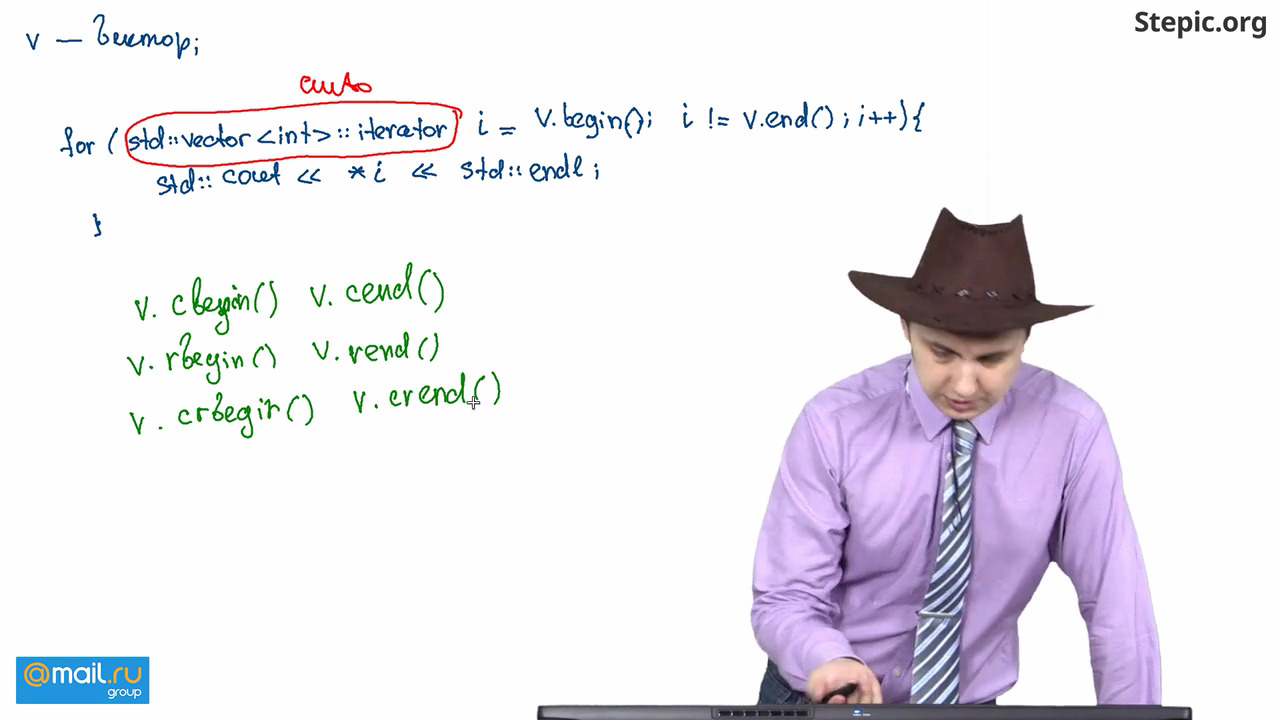 Stepic.org
v — вектор;
auto
for ( std::vector <int> :: iterator i = v.begin(); i != v.end() ; i++) {
std:: cout << *i << std:: endl ;
}
v. cbegin() v. cend()
v. rbegin() v. rend()
v. crbegin() v. crend()
@mail.ru
group